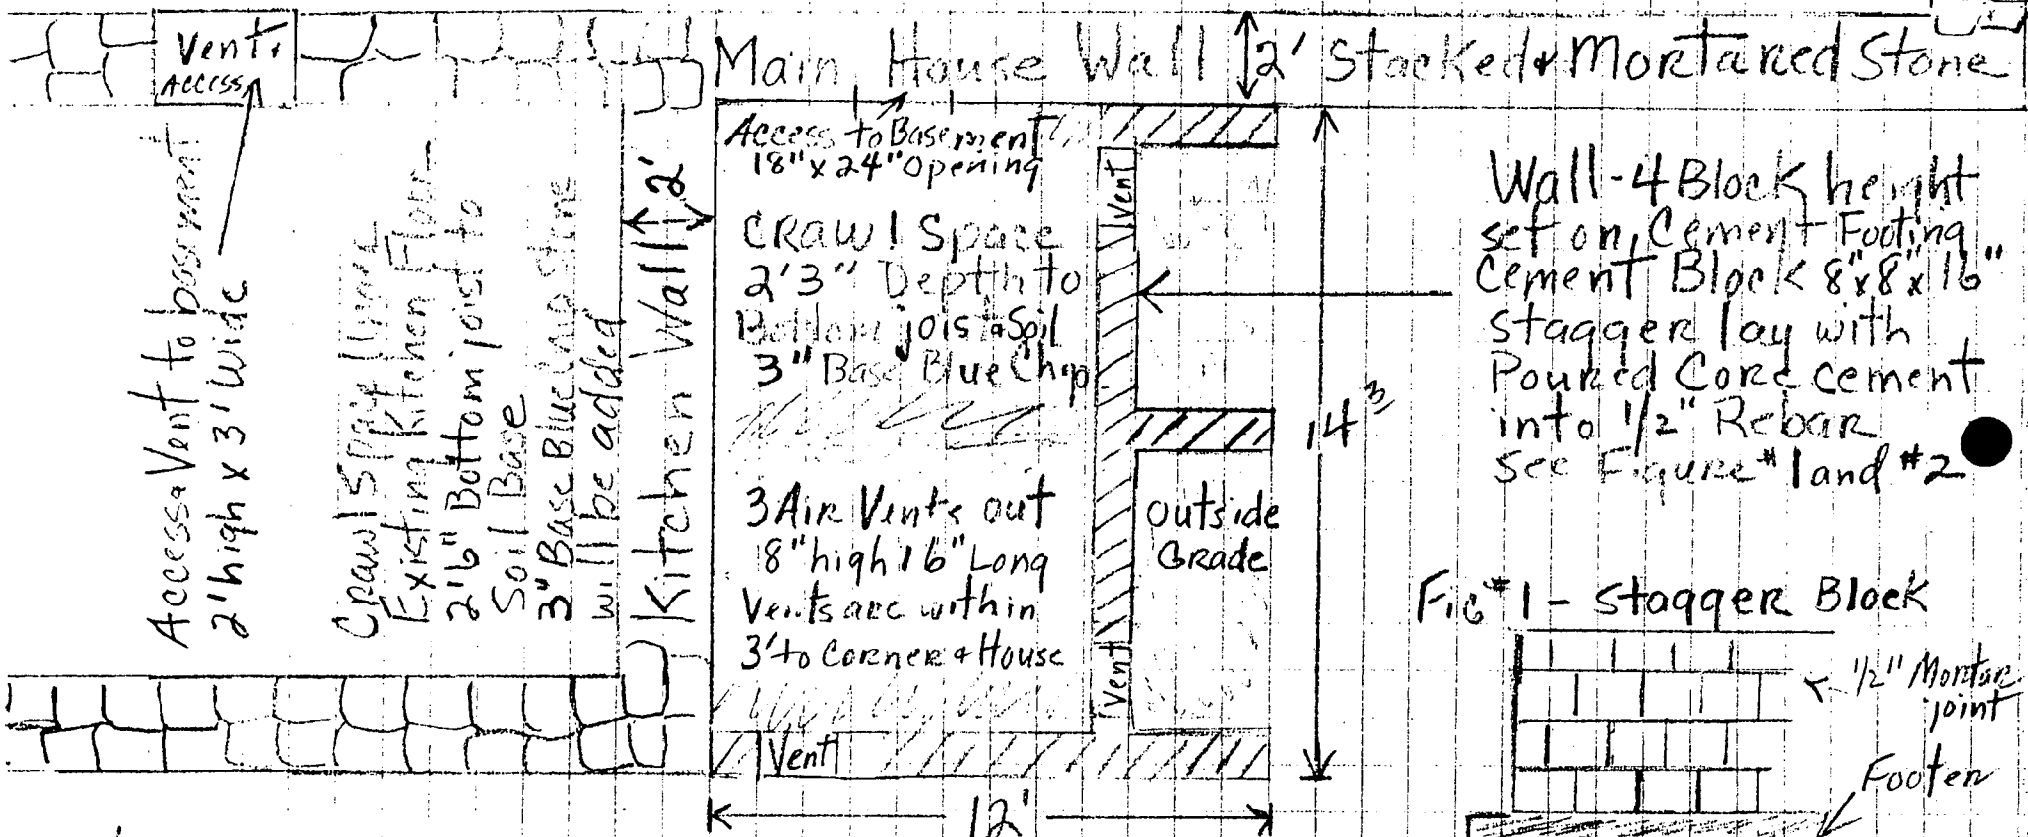 Vent &
Access
Main House Wall 2' Stacked & Mortared Stone
Access to Basement
18"x24" Opening
Access & Vent to basement
2' high x 3' wide
Crawl Space Under
Existing Kitchen Floor-
2'6" Bottom joist to
Soil Base
3" Base Blue chip stone
will be added
Kitchen Wall 2'
Crawl Space
2'3" Depth to
Bottom joist & Soil
3" Base Blue Chip
3 Air Vents out
8" high 16" Long
Vents are within
3' to Corner & House
Vent
Vent
Vent
Outside
Grade
14'3"
12'
Wall - 4 Block height
set on Cement Footing
Cement Block 8"x8"x16"
stagger lay with
Poured Core cement
into 1/2" Rebar
see Figure #1 and #2
Fig #1 - Stagger Block
1/2" Mortar
joint
Footer